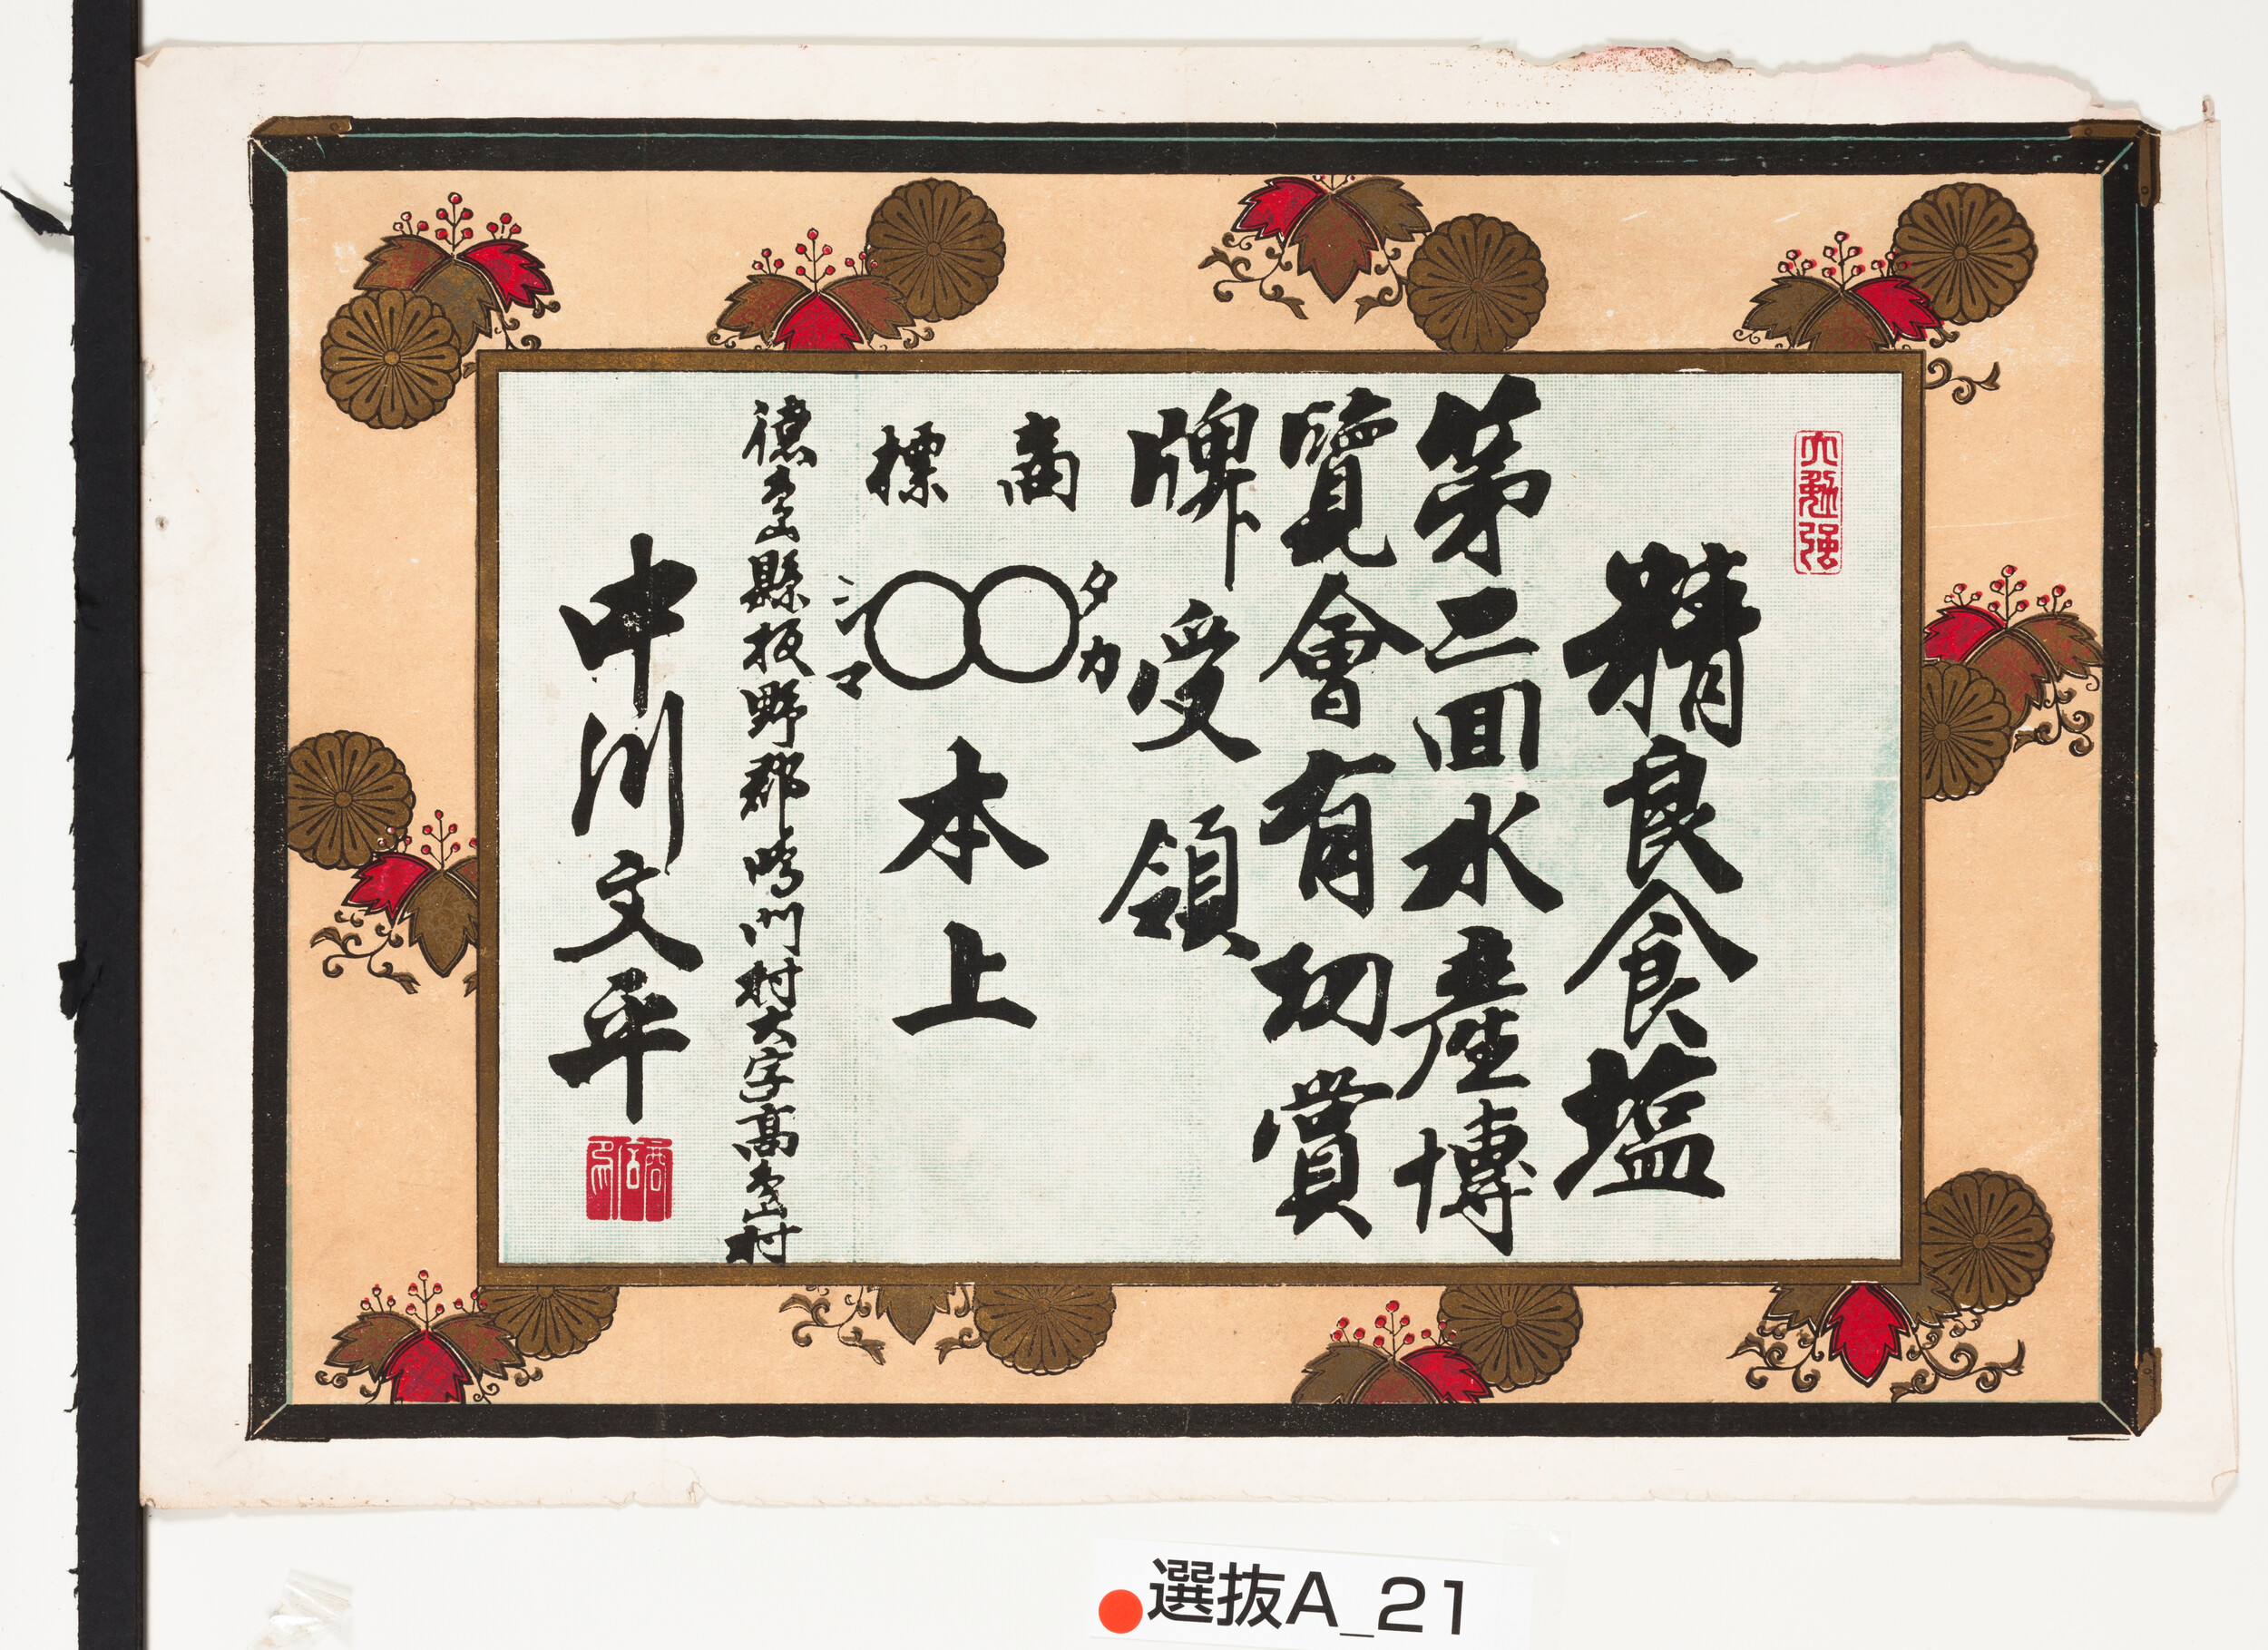 大勉强
精良食塩
第二回水産博
覽會有功賞
牌受領
商標
タカ
シマ
本上
德島縣板野郡鳴門村大字高島村
中川文平
選抜A_21